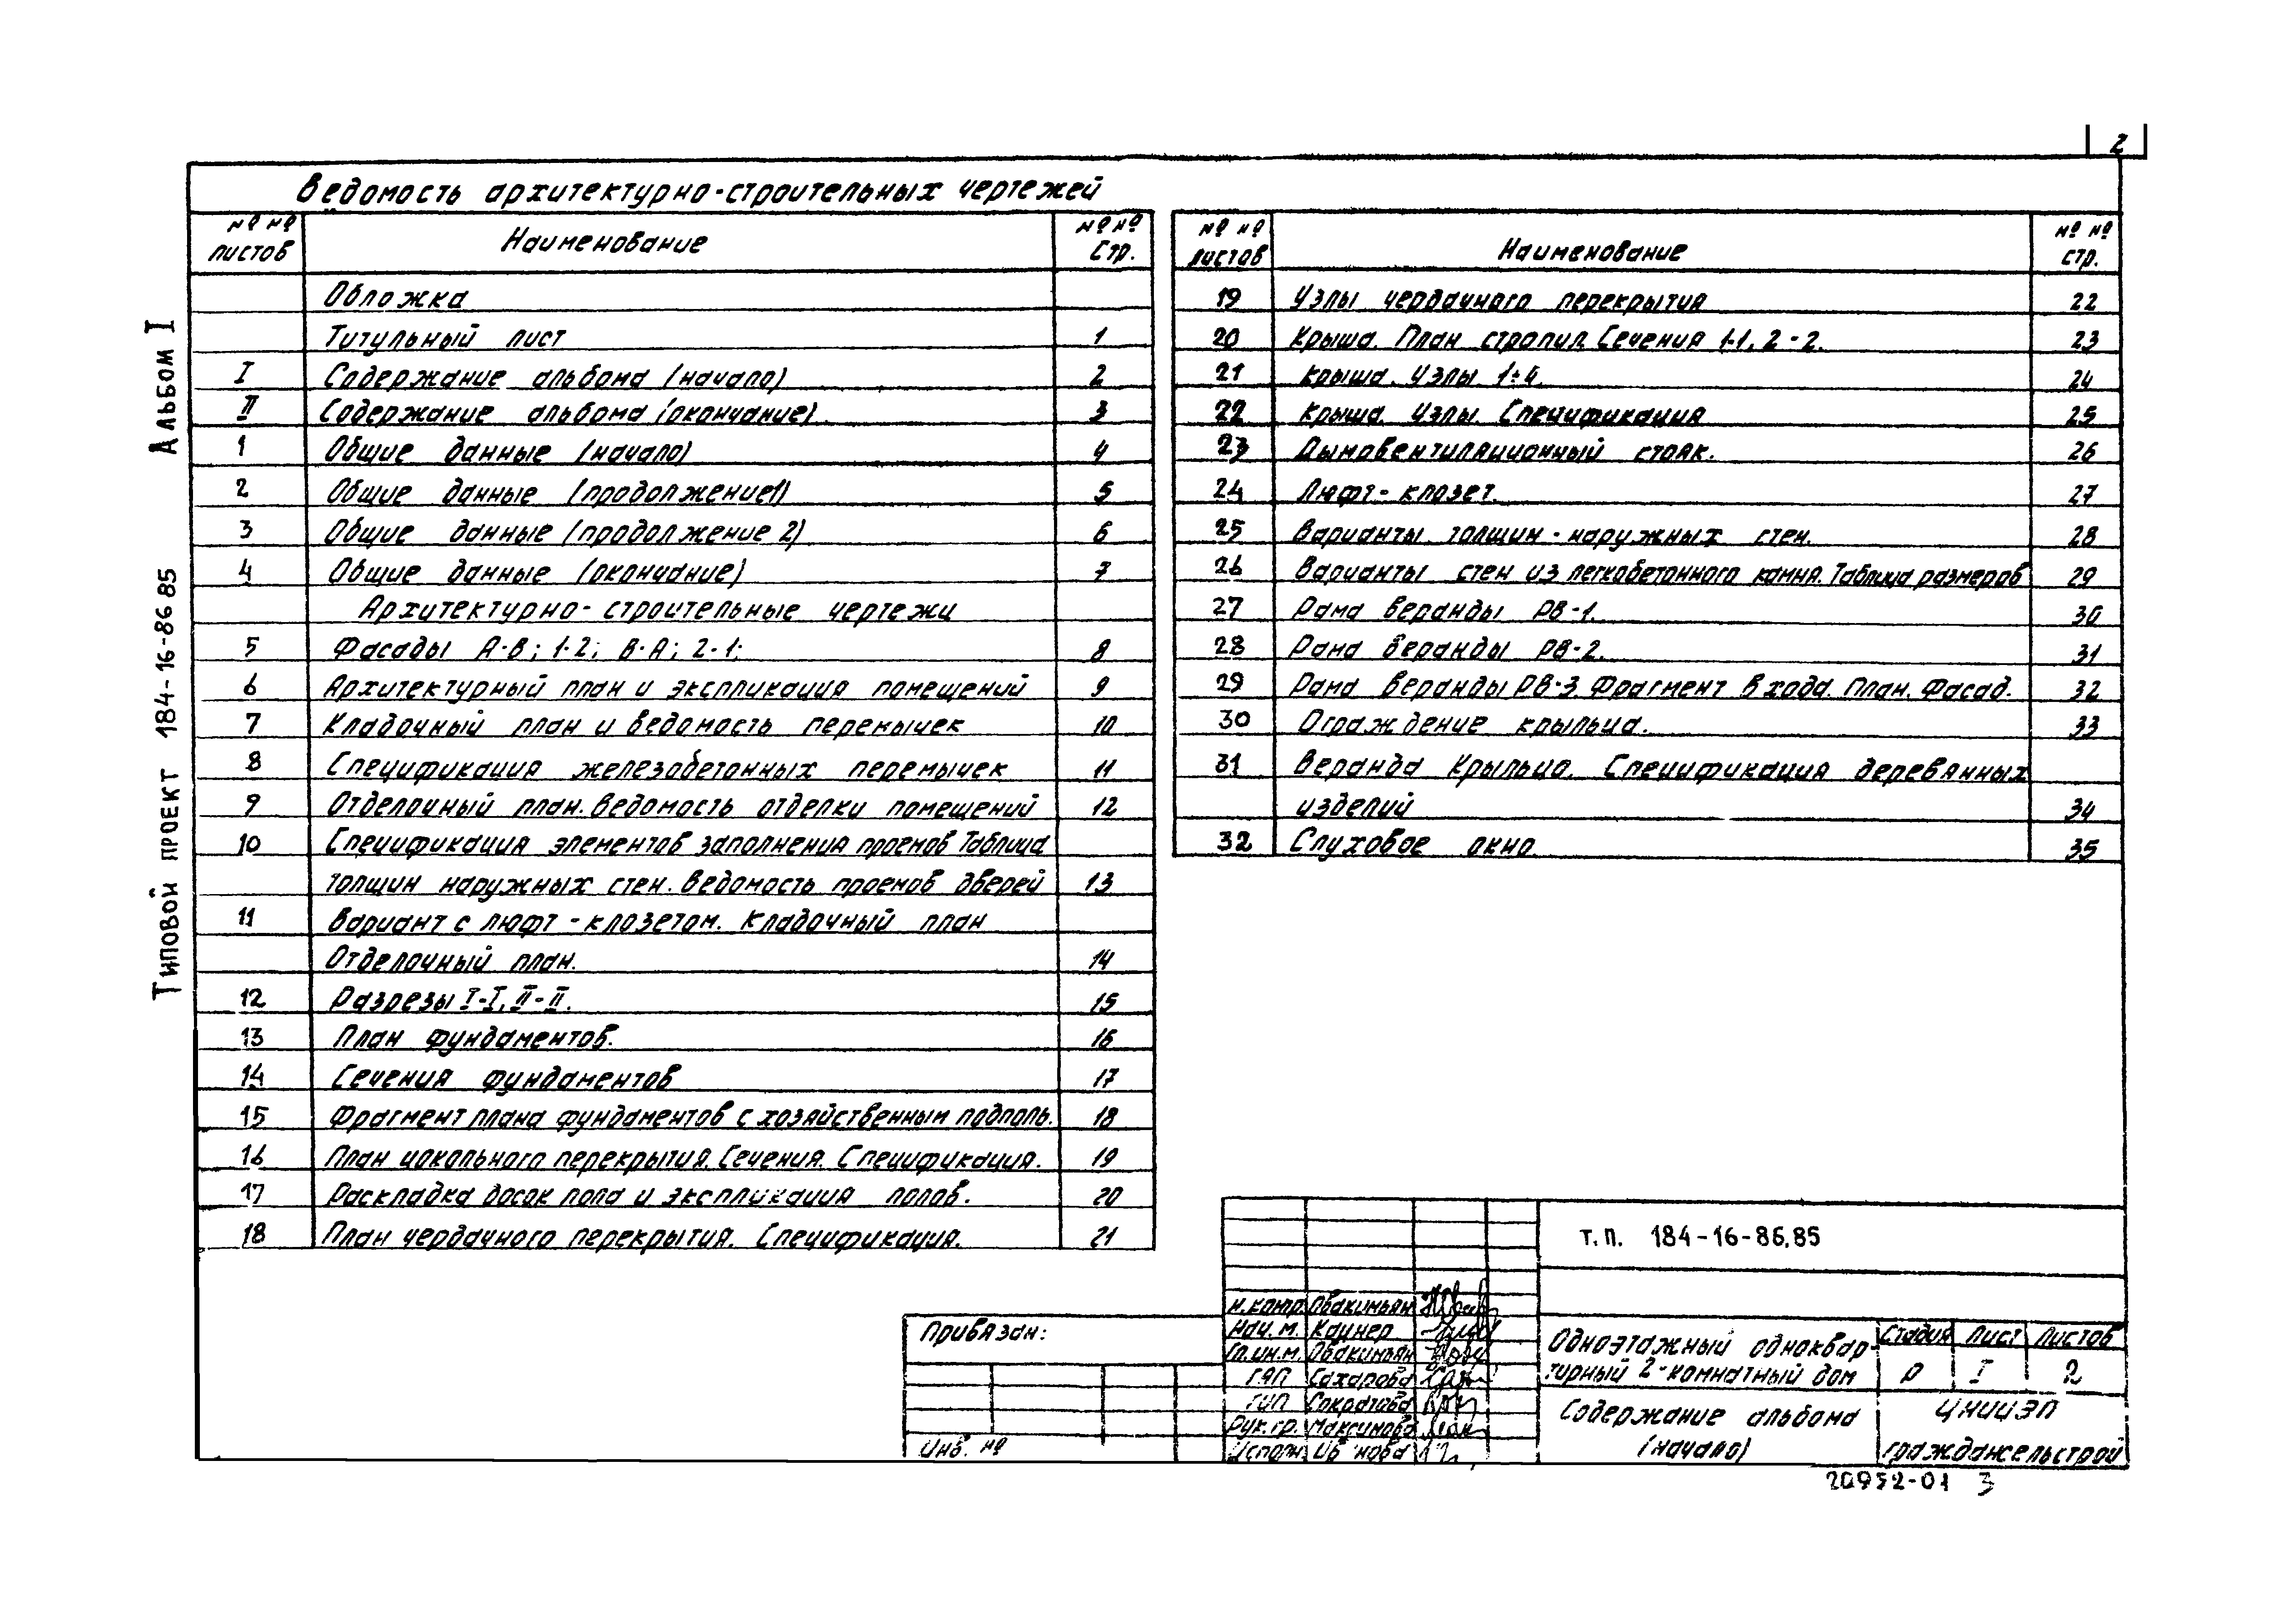 2
Альбом I
Типовой проект 184-16-86.85
Ведомость архитектурно-строительных чертежей
№ № листов Наименование № № Стр.
Обложка
Титульный лист 1
I Содержание альбома (начало) 2
II Содержание альбома (окончание). 3
1 Общие данные (начало) 4
2 Общие данные (продолжение1) 5
3 Общие данные (продолжение 2) 6
4 Общие данные (окончание) 7
Архитектурно-строительные чертежи
5 Фасады А-В; 1-2; В-А; 2-1; 8
6 Архитектурный план и экспликация помещений 9
7 Кладочный план и ведомость перемычек 10
8 Спецификация железобетонных перемычек 11
9 Отделочный план. Ведомость отделки помещений 12
10 Спецификация элементов заполнения проемов Таблица
толщин наружных стен. Ведомость проемов дверей 13
11 Вариант с люфт-клозетом. Кладочный план
Отделочный план. 14
12 Разрезы I-I, II-II. 15
13 План фундаментов. 16
14 Сечения фундаментов 17
15 Фрагмент плана фундаментов с хозяйственным подполь. 18
16 План цокольного перекрытия. Сечения. Спецификация. 19
17 Раскладка досок пола и экспликация полов. 20
18 План чердачного перекрытия. Спецификация. 21
№ № листов Наименование № № стр.
19 Узлы чердачного перекрытия 22
20 Крыша. План стропил. Сечения 1-1, 2-2. 23
21 Крыша. Узлы 1÷4. 24
22 Крыша. Узлы. Спецификация 25
23 Дымовентиляционный стояк. 26
24 Люфт-клозет. 27
25 Варианты толщин-наружных стен. 28
26 Варианты стен из легкобетонного камня. Таблица размеров 29
27 Рама веранды РВ-1. 30
28 Рама веранды РВ-2. 31
29 Рама веранды РВ-3 Фрагмент входа. План. Фасад. 32
30 Ограждение крыльца. 33
31 Веранда Крыльцо. Спецификация деревянных
изделий 34
32 Слуховое окно 35
т.п. 184-16-86.85
Привязан:
Инв. №
Н.контр. Овакимьян
Нач. м. Каунер
Гл.ин.м. Овакимьян
ГАП Сахарова
ГИП
Рук.гр. Максимова
Исполн.
Одноэтажный одноквар-
тирный 2-комнатный дом
Стадия Лист Листов
Р I 2
Содержание альбома
(начало)
ЦНИИЭП
граждансельстрой
20952-01 3